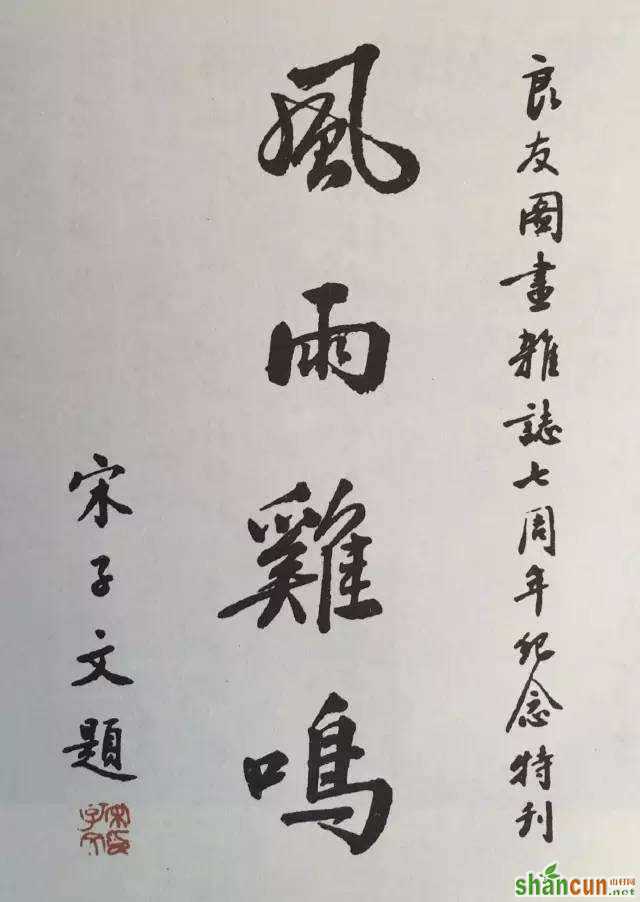 良友圖畫雜誌七周年紀念特刊
風雨雞鳴
宋子文題
shancun
山村网
.net